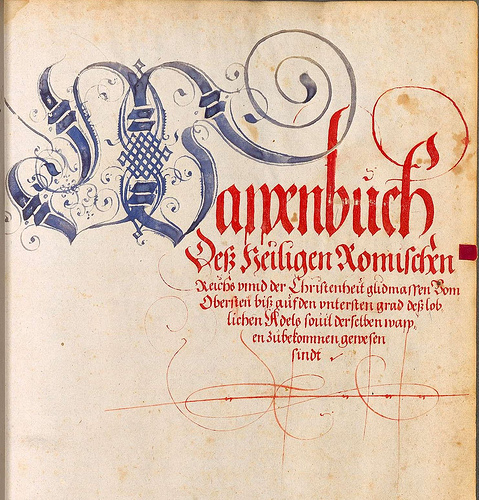 Wappenbuch
Deß Heiligen Romischen
Reichs vnnd der Christenheit glidmassen Vom
Obersten biß auf den vntersten grad deß lob,
lichen Adels souil derselben wapp,
en zubekommen gewesen
sindt